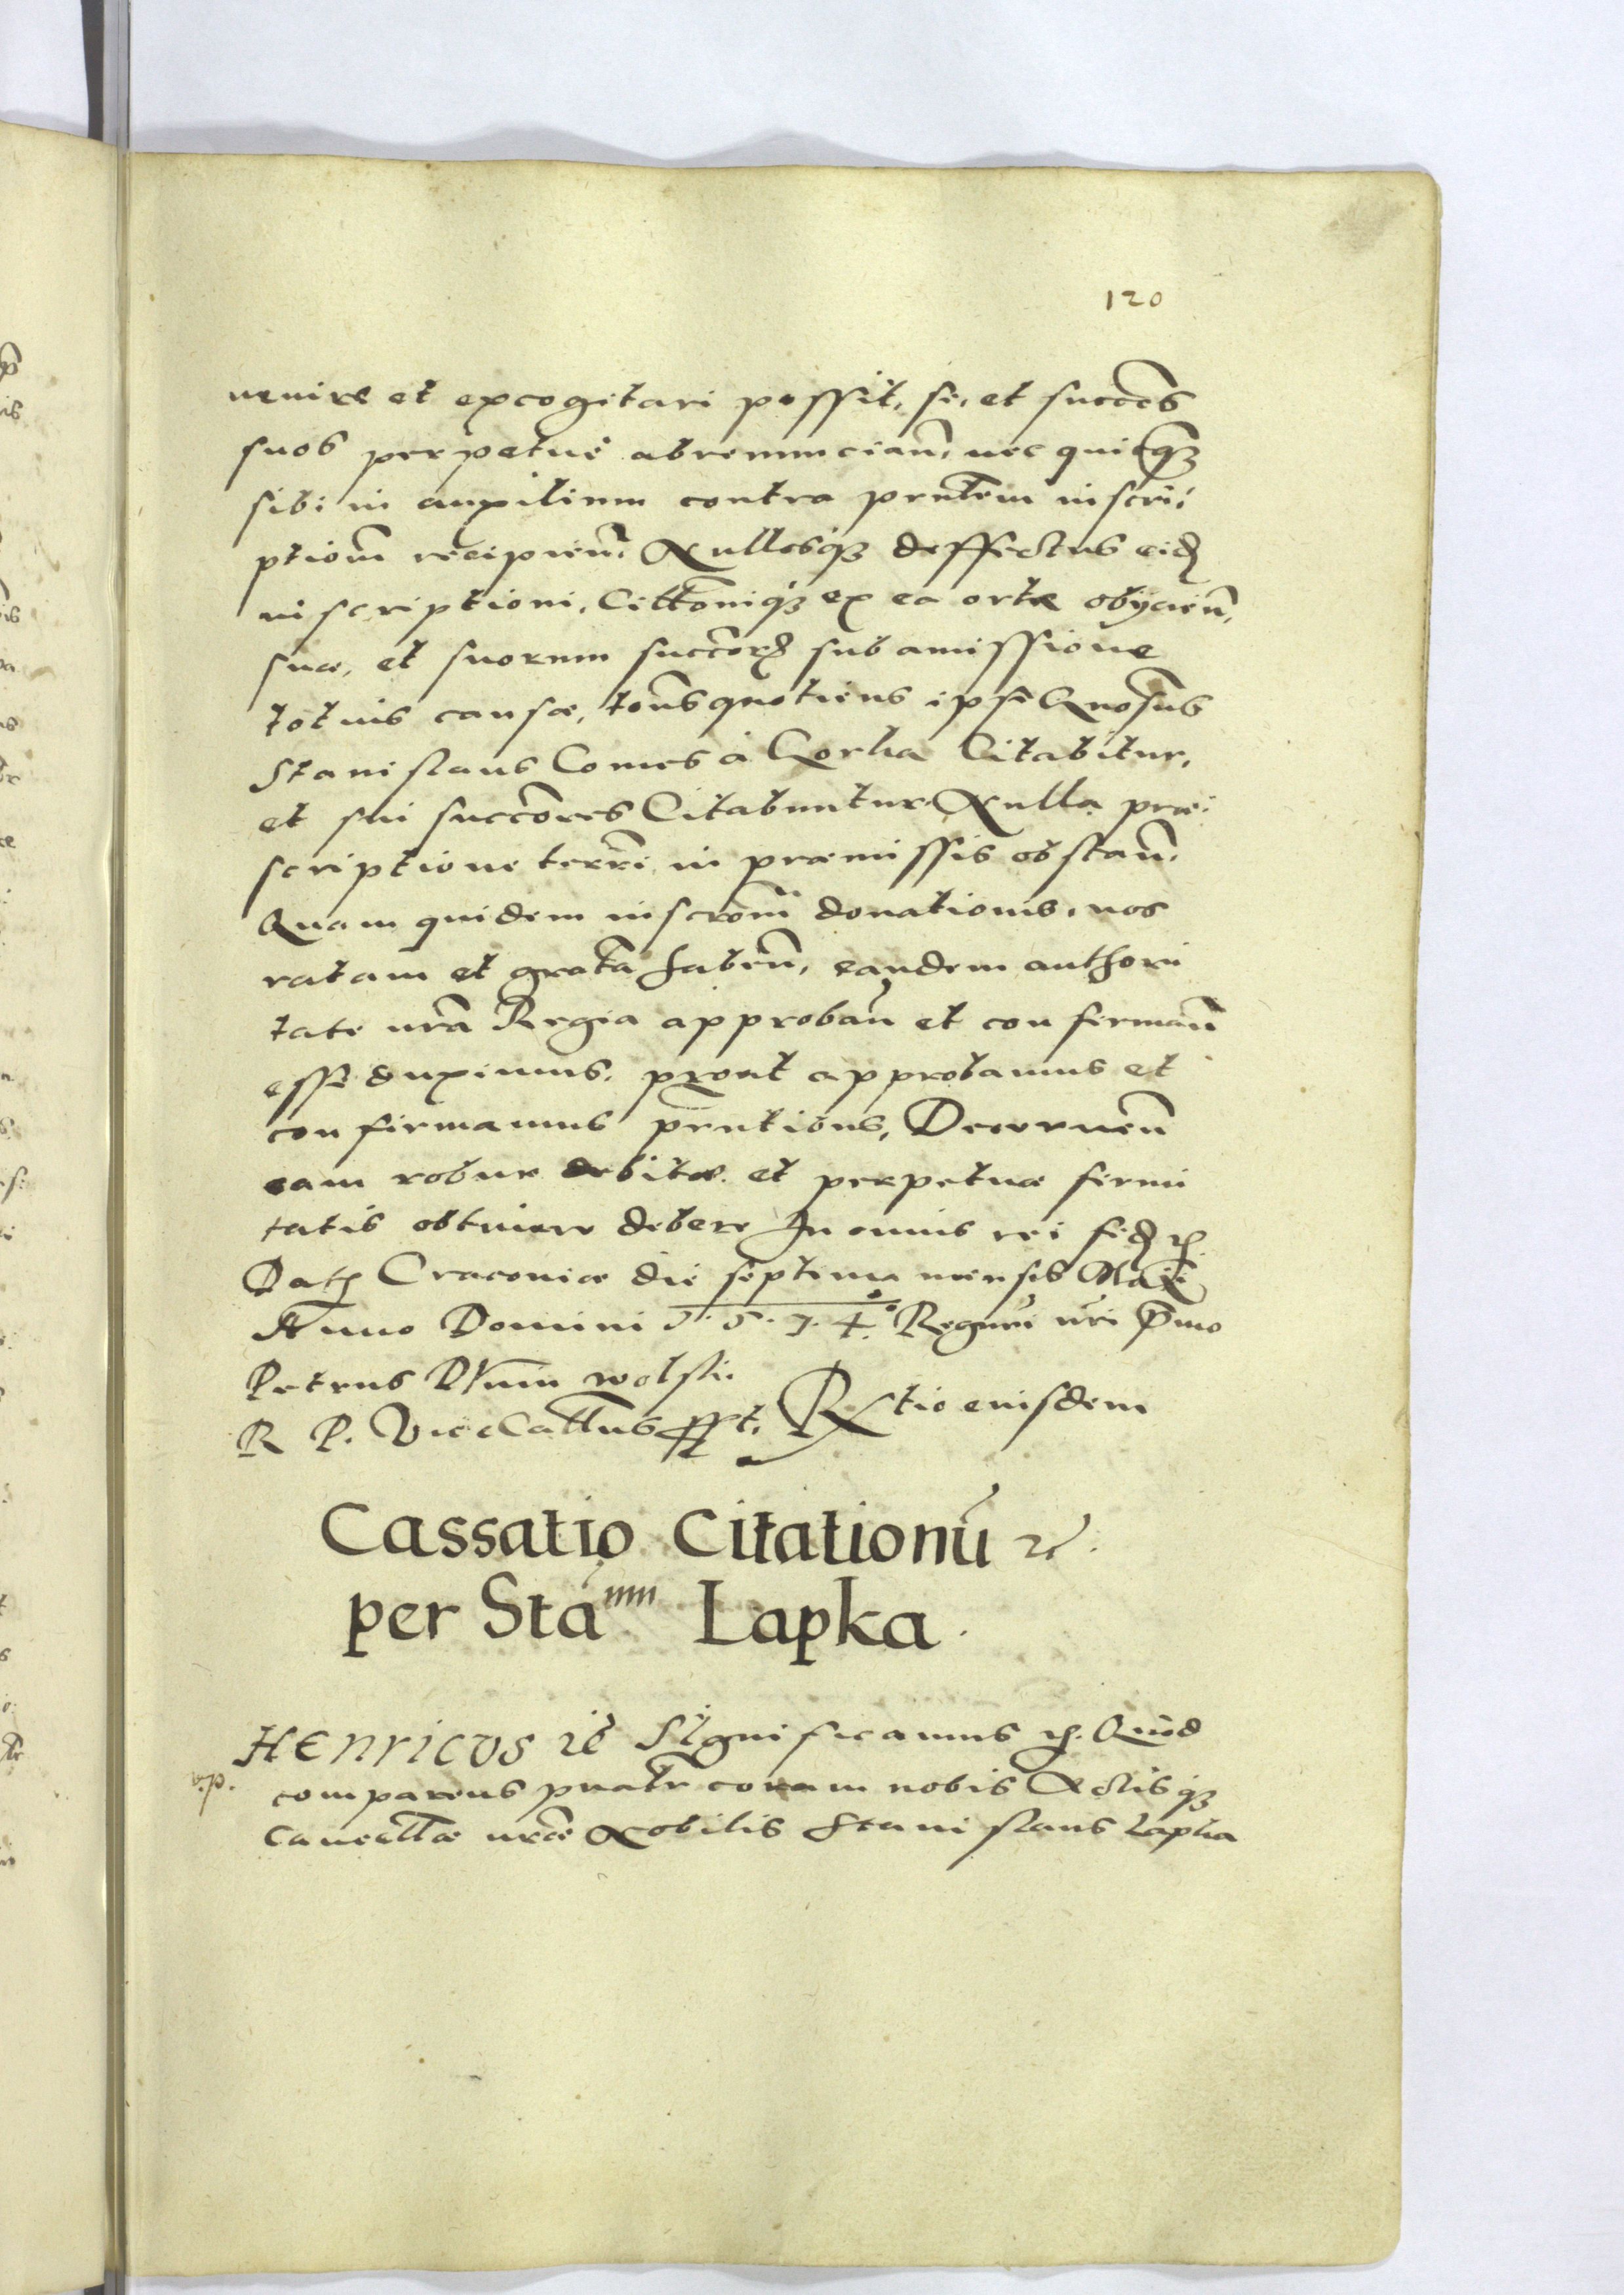 120
venire et excogitari possit, se, et succes̄
suos perpetue abrenuncian̄, nec quitq̄ꝫ
sibi in auxilium contra prn̄tem inscri,
ptiom̄ recipien̄. Nullosqꝫ deffectus eid̄
inscriptioni, Citt̄oniqꝫ ex ea ortæ obijcien̄,
suæ, et suorum succ̄or̄ sub amissione
totius causæ, tot̄ns quotiens ipse Gnōsus
Stanislaus Comes à Gorka Citabitur,
et sui succ̄ores Citabuntur Nulla præ:
scriptione terr̄e in præmissis obstan̄.
Quam quidem inscr̄om̄ donationis, nos
ratam et grat̄a haben̄, eandem authori
tate nr̄a Regia approban̄ et confirman̄
esse duximus. prout approbamus et
confirmamus prn̄tibus, Decernen̄
eam robur debitæ et perpetuæ firmi
tatis obtinere debere In cuius rei fid̄ ꝛc̄.
Dat̄ Cracoviæ die septima mensis Maij
Anno Domini 1.5.7.4. Regnī nr̄i Prīmo
Petrus Dunin wolski
R P. ViceCall̄us sszt. R̄tio eiusdem
Cassatio Citationū ꝛc.
per Stām̄ Lapka.
HENRICVS ꝛc̄ SIgnificamus ꝛc̄. Quod
comparens prn̄atr coram nobis Actisqꝫ
Cancell̄æ nr̄æ Nobilis Stanislaus Lapka